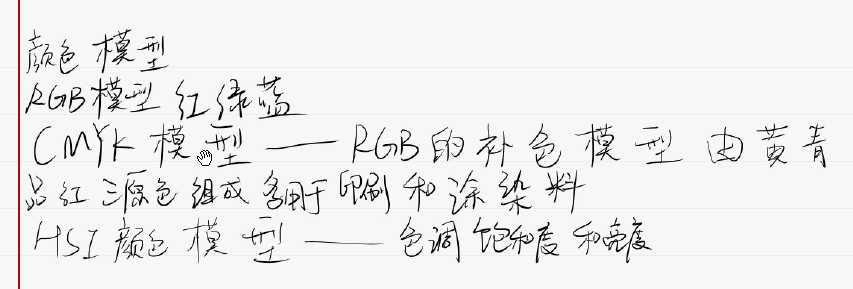 颜色模型
RGB模型 红绿蓝
CMYK模型——RGB的补色模型 由黄青
品红 三源色组成 多用于印刷和涂染料
HSI颜色模型——色调 饱和度 和亮度